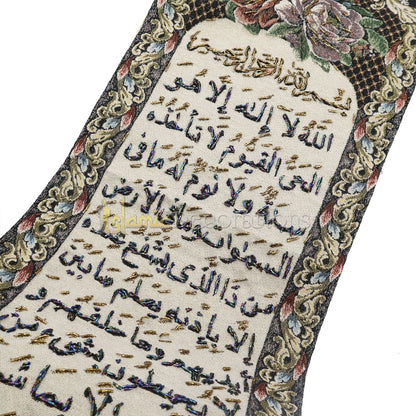 بسم الله الرحمن الرحيم
الله لا إله إلا هو
الحي القيوم لا تأخذه
سنة ولا نوم له ما في
السموات وما في الأرض
من ذا الذي يشفع عنده
إلا بإذنه يعلم ما بين
أيديهم وما خلفهم و
لا يحيطون بشيء من
إلا بما شا